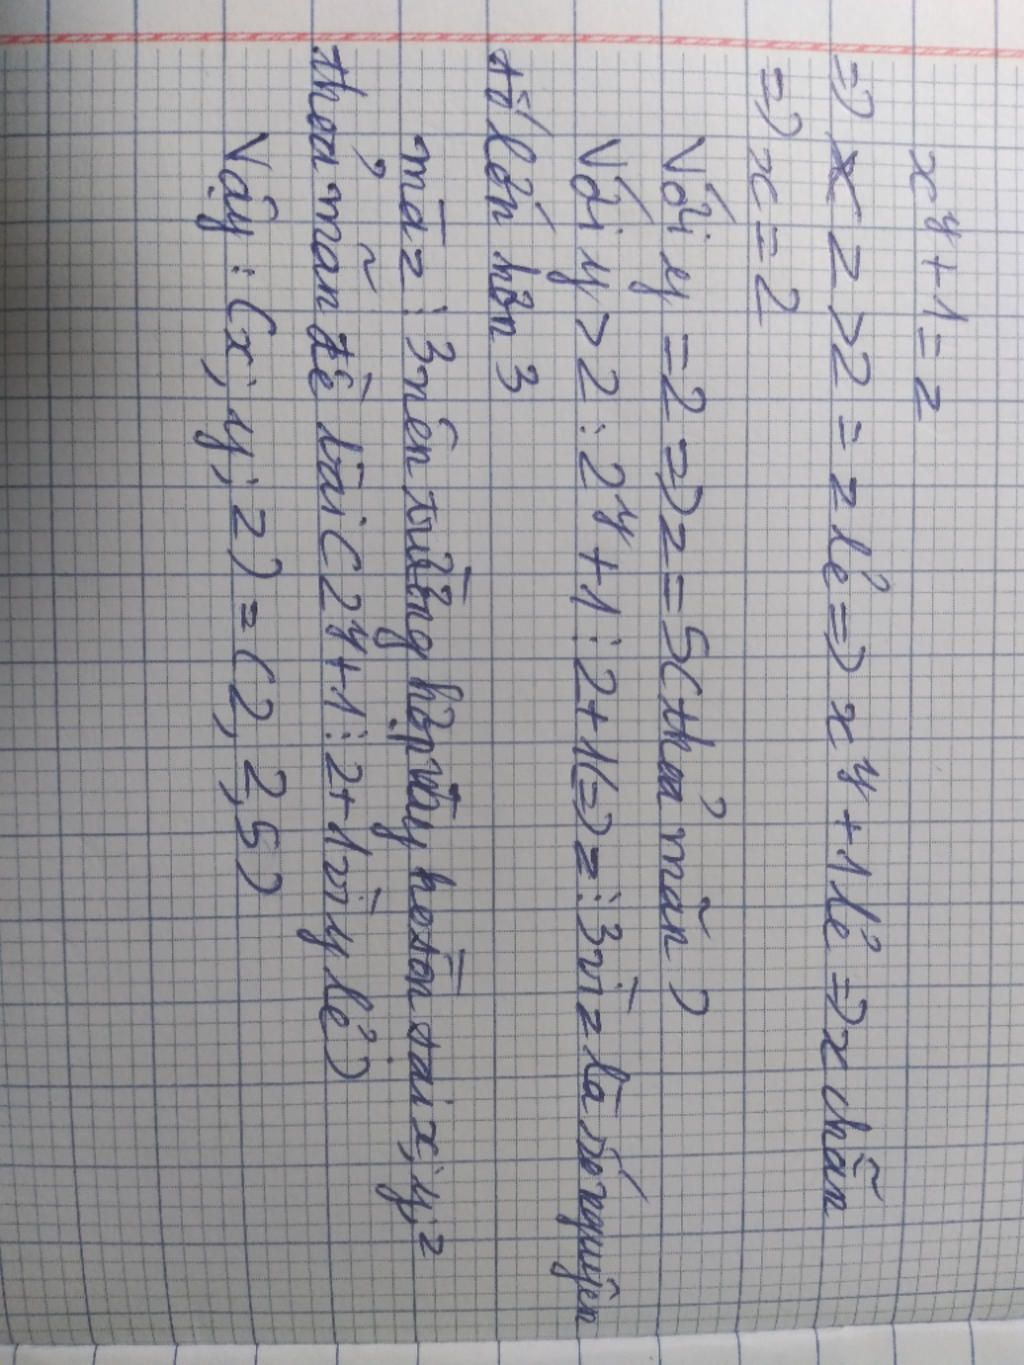 x^y + 1 = z
=) z > 2 = z lẻ =) x^y + 1 lẻ =) x chẵn
=) x = 2
Với y = 2 =) z = 5 (thoả mãn)
Với y > 2 : 2^y + 1 ⋮ 2 + 1 (=) z ⋮ 3 vì z là số nguyên
tố lớn hơn 3
mà z ⋮ 3 nên trường hợp này ko tồn tại x, y, z
thoả mãn đề bài (2^y + 1 ⋮ 2 + 1 vì y lẻ)
Vậy : (x; y; z) = (2, 2, 5)